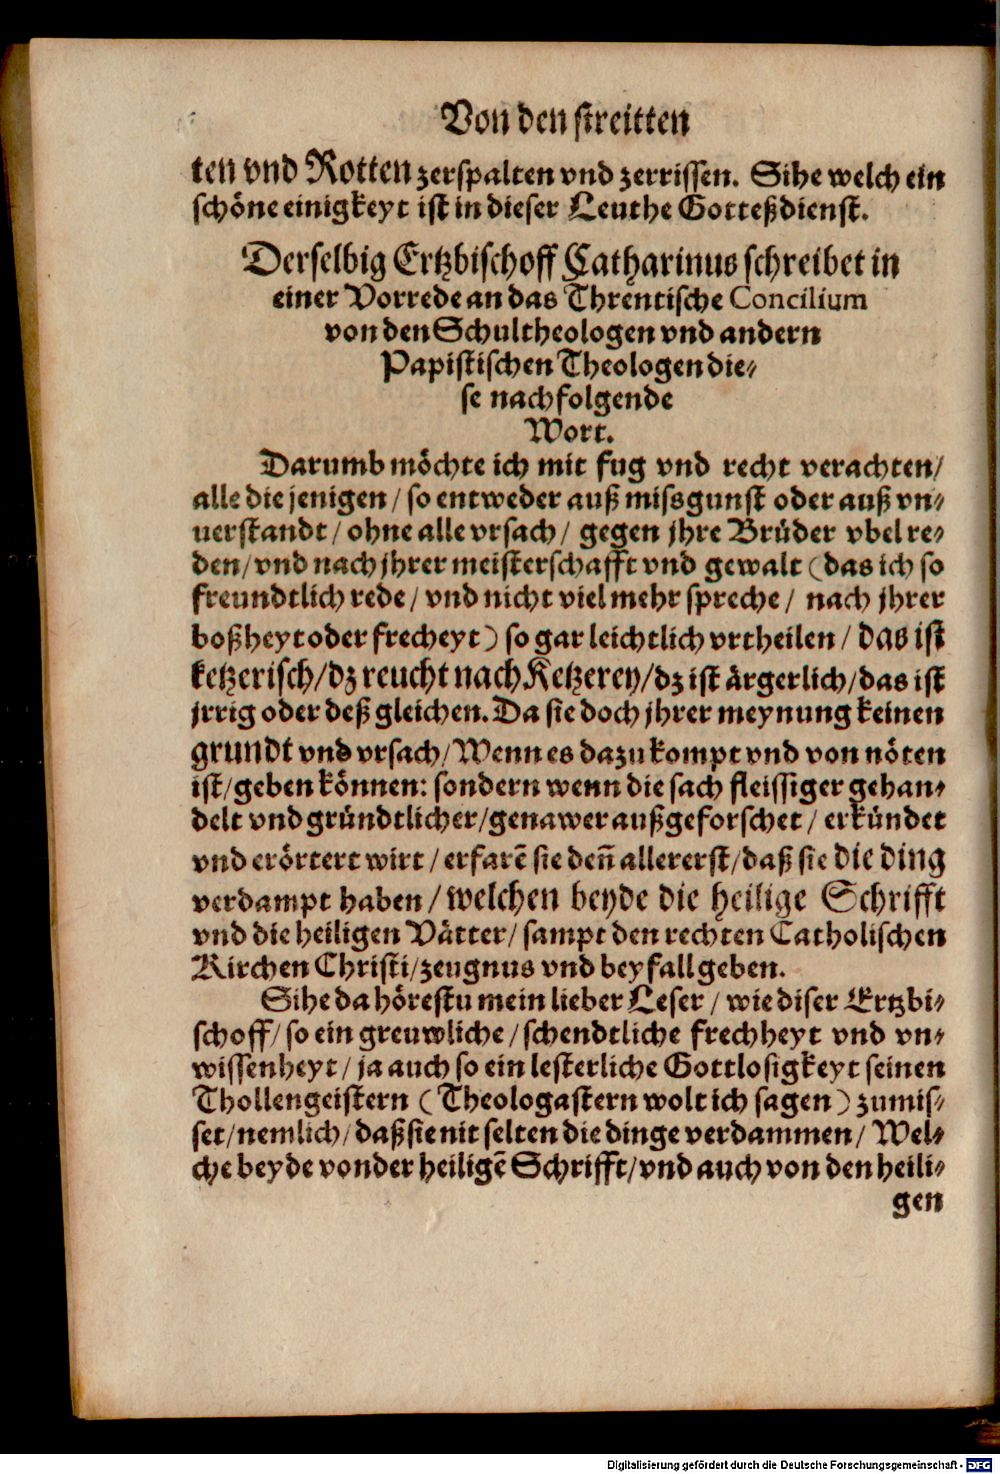 Von den streitten
ten vnd Rotten zerspalten vnd zerrissen. Sihe welch ein
schöne einigkeyt ist in dieser Leuthe Gotteßdienst.
Derselbig Ertzbischoff Catharinus schreibet in
einer Vorrede an das Threntische Concilium
von den Schultheologen vnd andern
Papistischen Theologen die⸗
se nachfolgende
Wort.
Darumb möchte ich mit fug vnd recht verachten/
alle die jenigen / so entweder auß missgunst oder auß vn⸗
uerstandt / ohne alle vrsach / gegen jhre Brüder vbel re⸗
den/ vnd nach jhrer meisterschafft vnd gewalt (das ich so
freundtlich rede / vnd nicht viel mehr spreche / nach jhrer
boßheyt oder frecheyt) so gar leichtlich vrtheilen / das ist
ketzerisch/ dz reucht nach Ketzerey/ dz ist ärgerlich/ das ist
jrrig oder deß gleichen. Da sie doch jhrer meynung keinen
grundt vnd vrsach/ Wenn es dazu kompt vnd von nöten
ist/ geben können: sondern wenn die sach fleissiger gehan⸗
delt vnd gründtlicher/ genawer außgeforschet / erkündet
vnd erörtert wirt / erfarẽ sie deñ allererst/ daß sie die ding
verdampt haben / welchen beyde die heilige Schrifft
vnd die heiligen Vätter/ sampt den rechten Catholischen
Kirchen Christi/ zeugnus vnd beyfall geben.
Sihe da hörestu mein lieber Leser / wie diser Ertzbi⸗
schoff/ so ein greuwliche / schendtliche frechheyt vnd vn⸗
wissenheyt / ja auch so ein lesterliche Gottlosigkeyt seinen
Thollengeistern (Theologastern wolt ich sagen) zumis⸗
set/ nemlich/ daß sie nit selten die dinge verdammen/ Wel⸗
che beyde von der heiligẽ Schrifft/ vnd auch von den heili⸗
gen
Digitalisierung gefördert durch die Deutsche Forschungsgemeinschaft - DFG